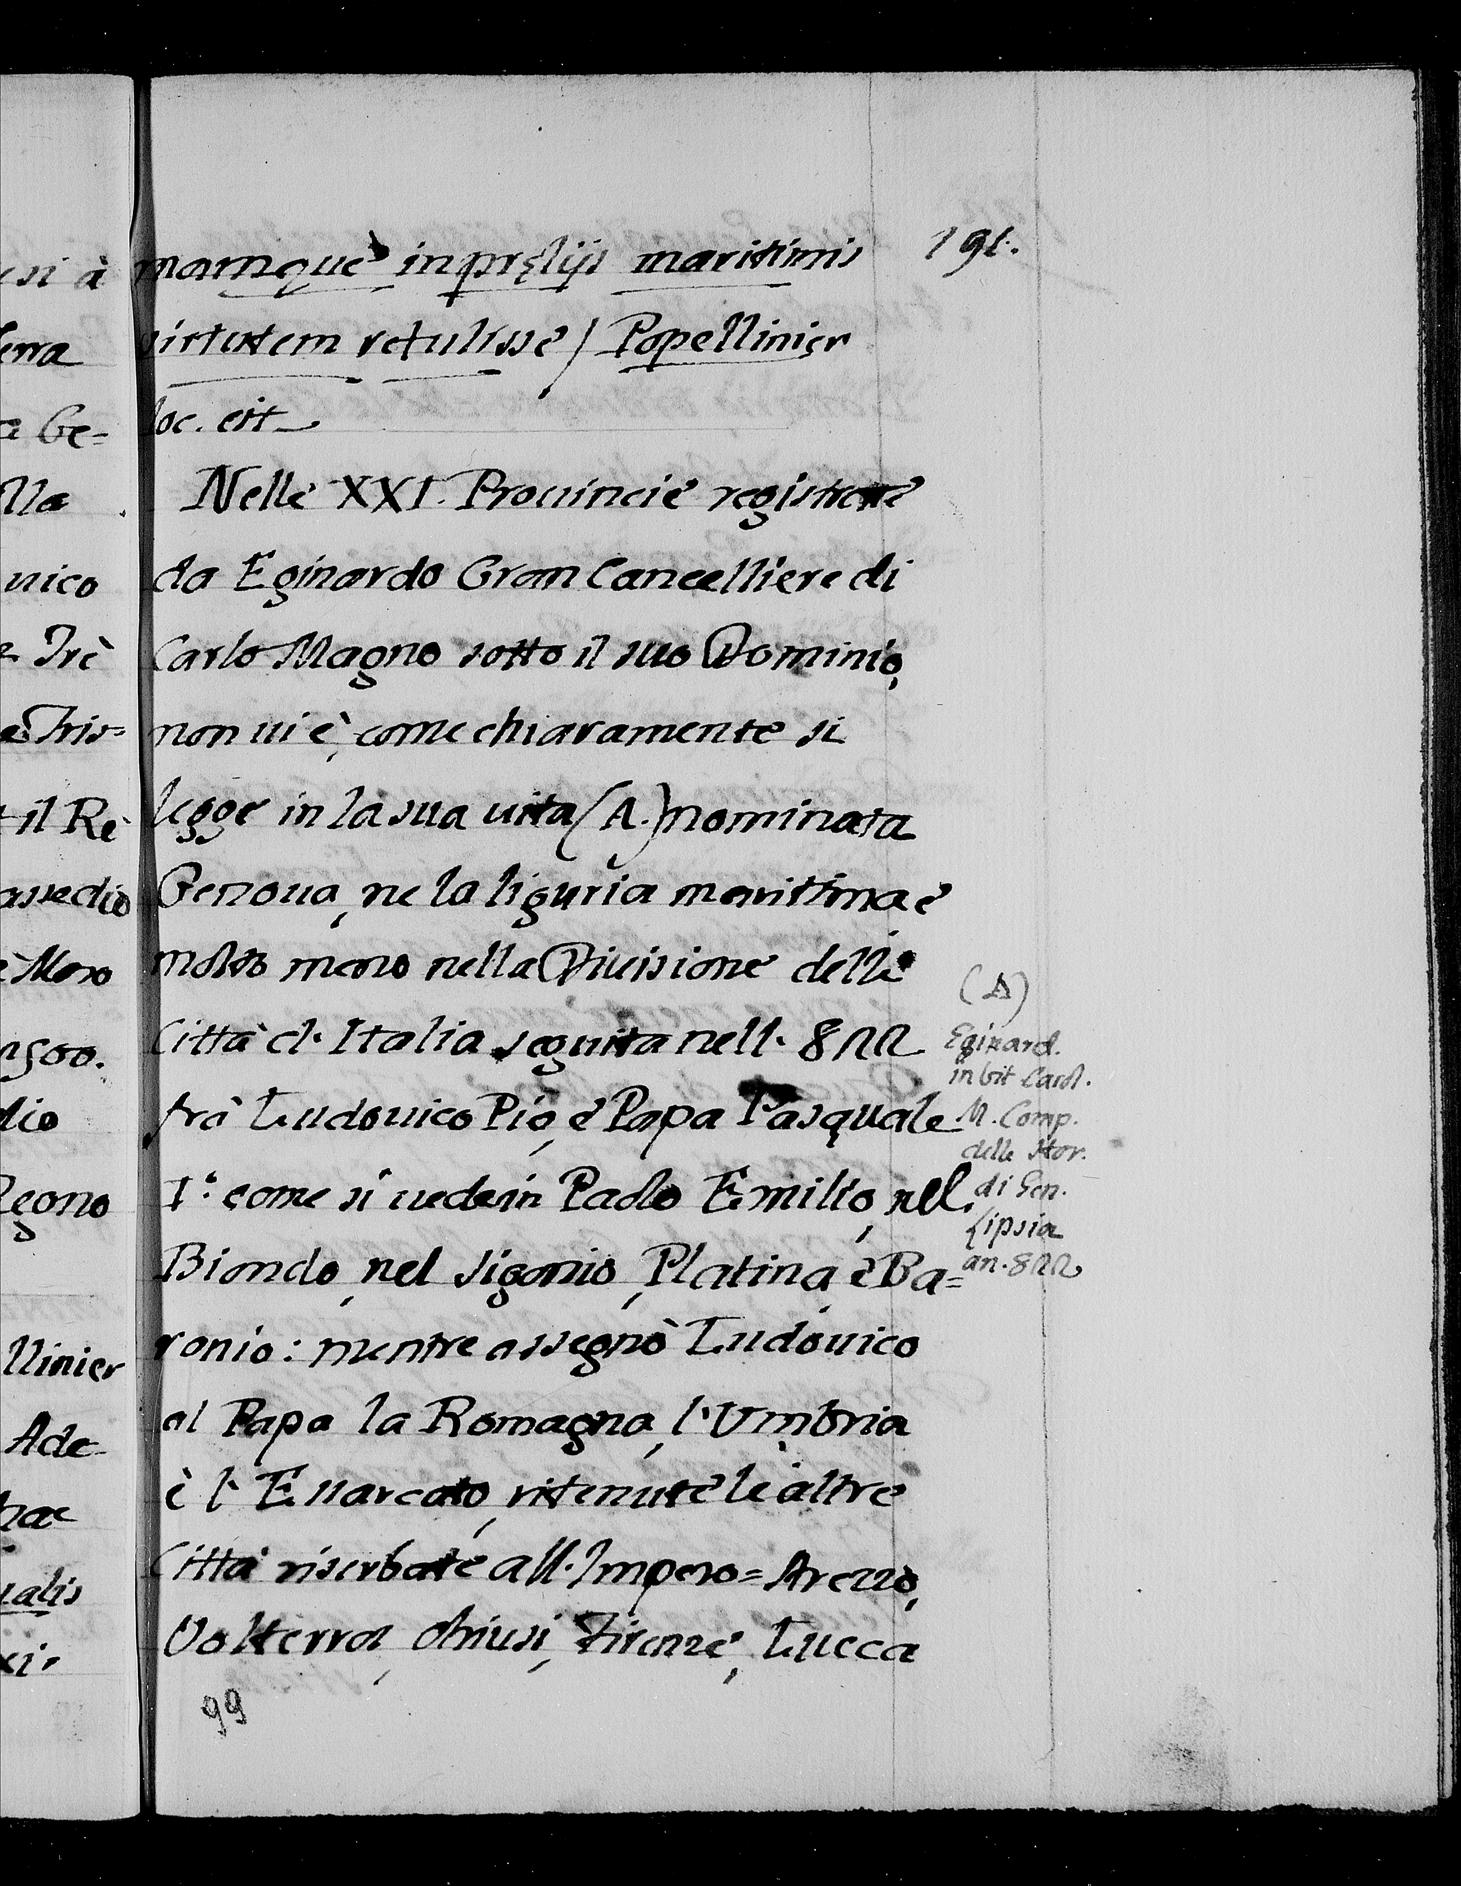 191.
mamque in pręlijs maritimis
virtutem retulisse / Popellinier
loc. cit
Nelle XXI. Prouincie registrate
da Eginardo Gran Cancelliere di
Carlo Magno sotto il suo Dominio,
non ui è, come chiaramente si
legge in la sua uita (A.) nominata
Genoua, ne la liguria marittima e
molto meno nella Diuisione delle
Città d. Italia seguita nell. 822
trà Ludouico Pio, e Papa Pasquale
I.º come si uede in Paolo Emilio, nel
Biondo, nel Sigonio, Platina, e Ba=
ronio: mentre assegnò Ludouico
al Papa la Romagna, l'Umbria
è l'Essarcato, ritenute le altre
Città riserbate all. Impero = Arezzo,
Volterra, Chiusi, Firenze, Lucca
(A)
Eginard.
in vit Carol.
M. Comp.
delle Stor.
di Gen.
Lipsia
an. 822
99
usi à
Terra
a Ge=
lla
uico
Trè
Tris=
il Re
assedio
Moro
dio
Regno
llinier
Ade
ualis
xi.